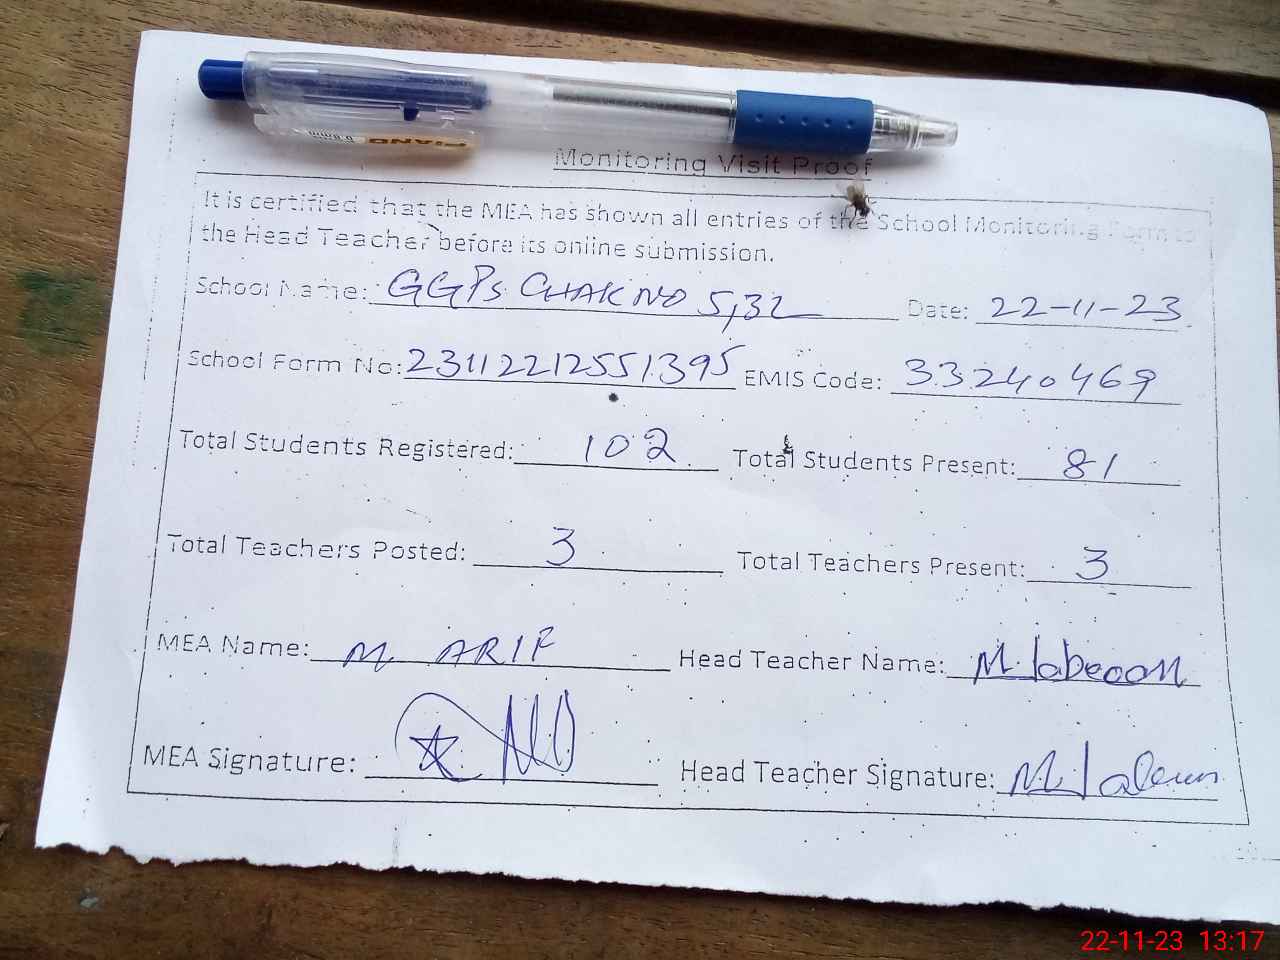 PIANO
0.8mm
Monitoring Visit Proof
It is certified that the MEA has shown all entries of the School Monitoring Form to
the Head Teacher before its online submission.
School Name: GGPS CHAK NO 5,32 Date: 22-11-23
School Form No: 23112212551395 EMIS Code: 33240469
Total Students Registered: 102 Total Students Present: 81
Total Teachers Posted: 3 Total Teachers Present: 3
MEA Name: M ARIF Head Teacher Name: M.
MEA Signature: Head Teacher Signature: M.
22-11-23 13:17